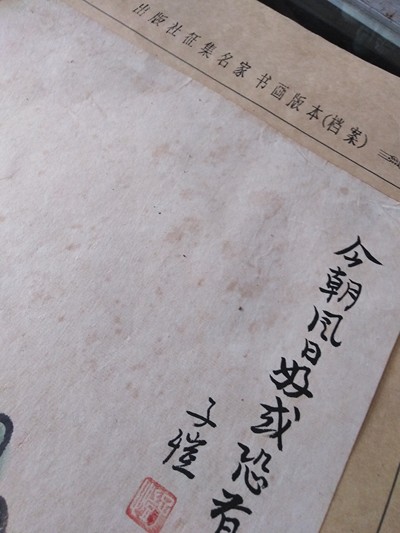 出版社征集名家书画版本(档案)
今朝风日好或恐有
子愷